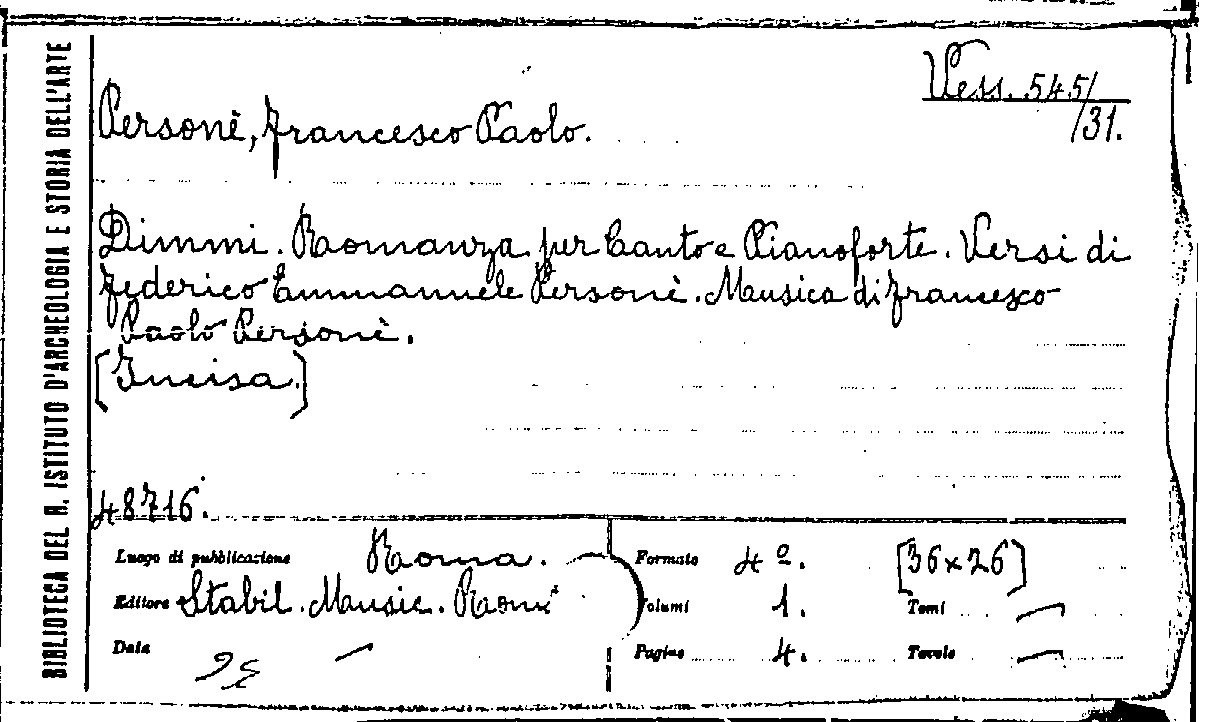 BIBLIOTECA DEL R. ISTITUTO D'ARCHEOLOGIA E STORIA DELL'ARTE
Vess. 545/
/31.
Personè, Francesco Paolo.
Dimmi. Romanza per Canto e Pianoforte. Versi di
Federico Emmanuele Personè. Musica di Francesco
Paolo Personè.
[Incisa.]
48716.
Luogo di pubblicazione Roma.
Editore Stabil. Music. Rom
Data —
Formato 4º. [36x26]
Volumi 1. Tomi —
Pagine 4. Tavole —